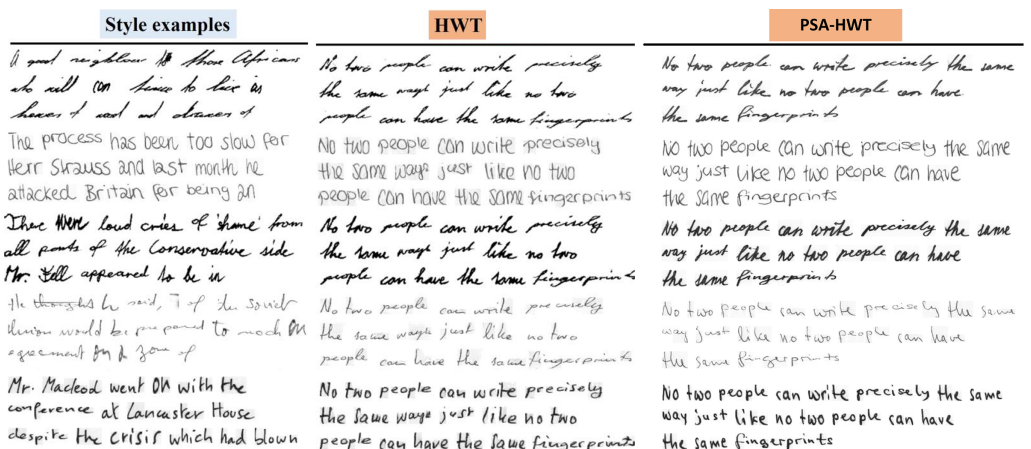 Style examples
HWT
PSA-HWT
A good neighbour to those Africans
who will can time to live in
of and of
The process has been too slow for
Herr Strauss and last month he
attacked Britain for being an
There were loud cries of 'shame' from
all parts of the Conservative side
Mr. Fell appeared to be in
He thought he said, of the Soviet
Union would be prepared to reach an
agreement on a zone of
Mr. Macleod went on with the
conference at Lancaster House
despite the crisis which had blown
No two people can write precisely
the same ways just like no two
people can have the same fingerprints
No two people can write precisely
the same ways just like no two
people can have the same fingerprints
No two people can write precisely
the same ways just like no two
people can have the same fingerprints
No two people can write precisely
the same ways just like no two
people can have the same fingerprints
No two people can write precisely
the same ways just like no two
people can have the same fingerprints
No two people can write precisely the same
way just like no two people can have
the same fingerprints
No two people can write precisely the same
way just like no two people can have
the same fingerprints
No two people can write precisely the same
way just like no two people can have
the same fingerprints
No two people can write precisely the same
way just like no two people can have
the same fingerprints
No two people can write precisely the same
way just like no two people can have
the same fingerprints